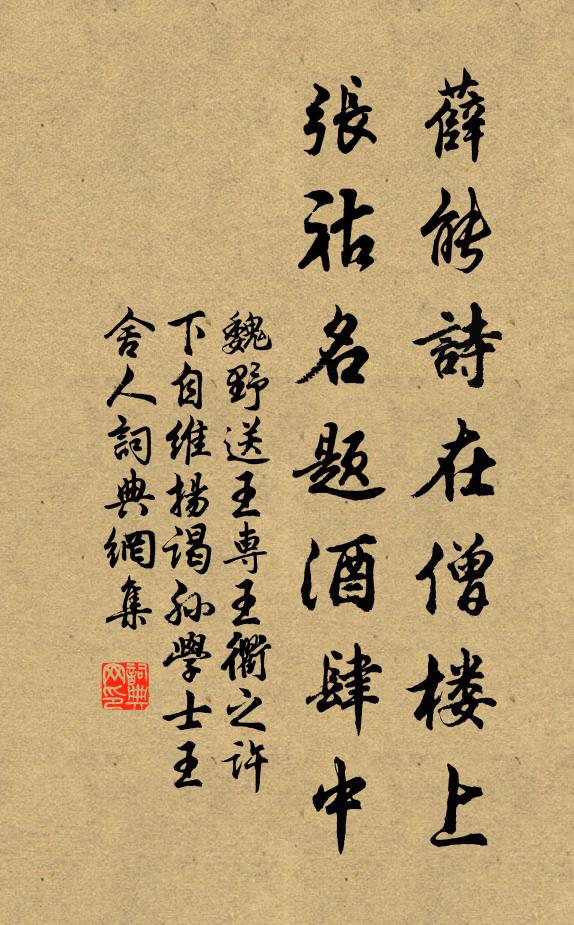 薛能詩在僧楼上
張祜名题酒肆中
魏野送王專王衢之许
下自维揚谒孙學士王
舍人詞典網集
詞典网印